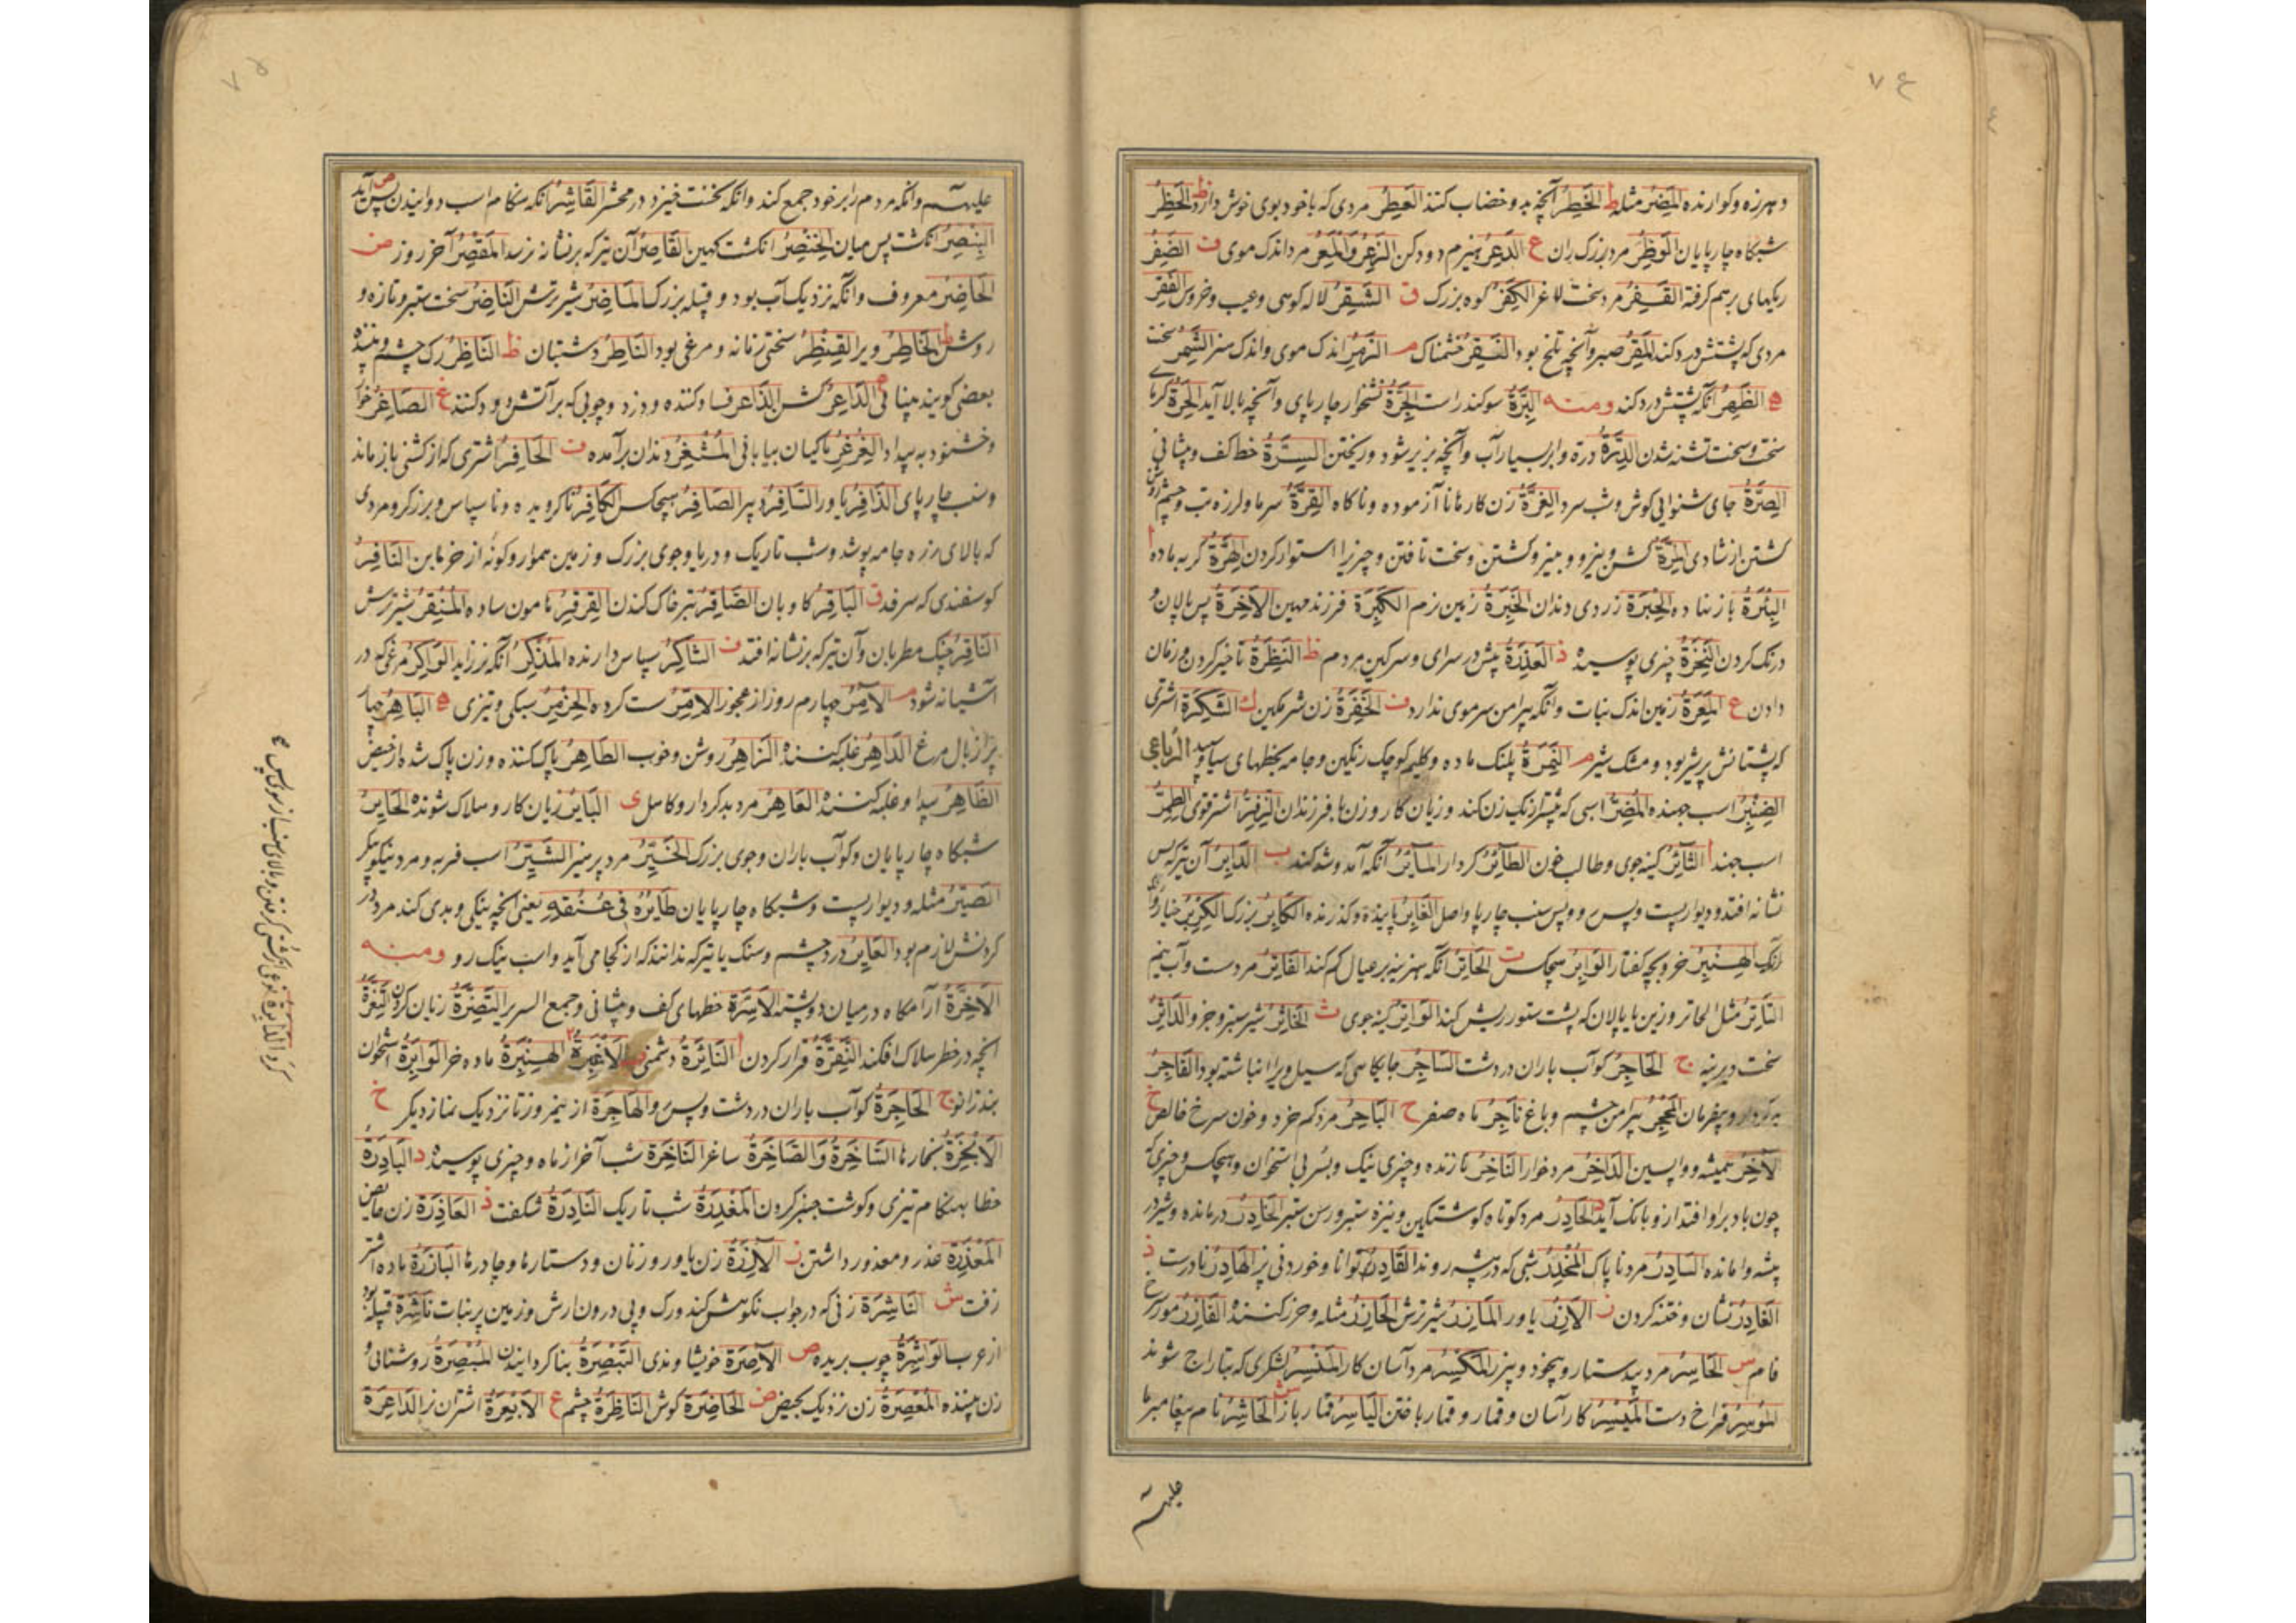 ۷۴
د هرزه و کوارنده المَضِرُ مثله ط الخَطِرُ آنچه بدو خضاب کنند العَطِرُ مردی که باخود بوی خوش دارد ظ الحَظِرُ
شبکاه چارپایان الوَظِرُ مرد بزرک ران ع الدَعِرُ هیزم دودکن الزَعِرُ وَالمَعِرُ مرد اندک موی ف الضَفِرُ
ریکهای برهم کرفته القَفِرُ مرد سخت لاغر الکَفِرُ کوه بزرک ق الشَقِرُ لاله کوهی وعیب و خروس الفَقِرُ
مردی که پشتش درد کند المَقِرُ صبر وآنچه تلخ بود النَقِرُ خشمناک م الزَمِرُ اندک موی واندک منز الشَمِرُ سخت
ه الظَهِرُ آنکه پشتش درد کند ومنه البِرَّةُ سوکند راست الجِرَّةُ نشخوار چارپای وآنچه ببالا آید الحِرَّةُ کرمای
سخت وسخت تشنه شدن الدِرَّةُ دره وابر بسیار آب وآنچه بزیر شود وریختن السِرَّةُ خط کف وپیشانی
الصِرَّةُ جای شنوایی کوش وشب سرد الغِرَّةُ زن کارها نا آزموده وناکاه القِرَّةُ سرما ولرزه تب وچشم روشن
کشتن از شادی المِرَّةُ کشن ونیرو و میز وکشتن وسخت تافتن وچیزیرا استوار کردن الهِرَّةُ کربه ماده ا
البِئرَةُ باز نهاده الحِبرَةُ زردی دندان الخَبِرَةُ زمین نرم الکِبرَةُ فرزند مهین الاَخِرَةُ پس پالان و
درنک کردن النَخِرَةُ چیزی پوسیده ذ العَذِرَةُ پیش در سرای وسرکین مردم ظ النَظِرَةُ تاخیر کردن و زمان
دادن ع المَعِرَةُ زمین اندک نبات وآنکه پیرامن سر موی ندارد ف الخَفِرَةُ زن شرمکین ک الشَکِرَةُ اشتری
که پستانش پر شیر بود ومشک شیر م النَمِرَةُ پلنک ماده وکلیم کوچک رنکین وجامه بخطهای سیاه وسپید الرباعی
الضِبِرُّ اسب جهنده المُضِرُّ اسبی که بیشتر از یک زن کند وزیان کار وزن با فرزندان الزِفِرُّ اشتر قوی الطِمِرُّ
اسب جهند ا الثَائِرُ کینه جوی وطالب خون الطَائِرُ کردار المَائِرُ آنکه آمد وشد کند ب الدَابِرُ آن تیر که پس
نشانه افتد ودیوار پست وپس رو وپس سنب چارپا واصل الغَابِرُ پاینده وکذرنده الکَابِرُ بزرک
الهِنبِرُ خر وبچه کفتار الوَابِرُ هیچکس ت الخَاتِرُ آنکه هزینه بر عیال کم کند الفَاتِرُ مرد سست وآب نیم
النَاتِرُ مثل الخاتر وزین یا پالان که پشت ستور ریش کند الوَاتِرُ کینه جوی ث الخَاثِرُ شیر ستبر وجز او الدَاثِرُ
سخت دیرینه ج الحَاجِرُ کوآب باران در دشت السَاجِرُ جایکاهی که سیل ویرا انباشته بود الفَاجِرُ
بدکردار وبیفرمان المَحجِرُ پیرامن چشم وباغ نَاجِرُ ماه صفر ح البَاحِرُ مرد کم خرد وخون سرخ خالص خ
الآخِرُ همیشه وواپسین الدَاخِرُ مرد خوار النَاخِرُ نازنده وچیزی نیک وبسر بی استخوان وهیچکس وچیزی که
چون باد براو افتد ازو بانک آید د الحَادِرُ مرد کوتاه کوشتکین ونیزه ستبر ورسن ستبر الخَادِرُ درمانده وشیر در
بیشه وامانده السَادِرُ مرد ناپاک المُخدِرُ شیری که در بیشه رود القَادِرُ توانا وخوردنی پز الهَادِرُ نادرست ذ
العَاذِرُ نشان وختنه کردن ز الآزِرُ یاور المَازِرُ شیر ترش الحَازِرُ مثله وحرز کننده الفَازِرُ مورسرخ
فام س الحَاسِرُ مرد بیدستار وبیخود وبیزره المَکسِرُ مرد آسان کار المَنسِرُ لشکری که بتاراج شوند
المُوسِرُ فراخ دست المَیسِرُ کار آسان وقمار وقمار باختن الیَاسِرُ قمارباز ش الحَاشِرُ نام پیغامبر ما
علیه
۷۵
علیه وآنکه مردم را بر خود جمع کند وآنکه نخست خیزد در محشر القَاشِرُ آنکه هنکام اسب دوانیدن پس آید ص
البِنصِرُ انکشت پس میان الخِنصِرُ انکشت کهین القَاصِرُ آن تیر که بر نشانه نرسد المَقصِرُ آخر روز ض
الحَاضِرُ معروف وآنکه نزدیک آب بود وقبیله بزرک المَاضِرُ شیر ترش النَاضِرُ سخت ستبر وتازه و
روشن ط الخَاطِرُ ویر القِنطِرُ سختی زمانه ومرغی بود النَاطِرُ دشتبان ظ النَاظِرُ رک چشم وبیننده
بعضی کویند بینایی ع الدَاعِرُ کشن الذَاعِرُ فساد کننده ودزد وچوبی که بر آتش دود کند غ الصَاغِرُ خوار
وخشنود به بیداد الغِرغِرُ ماکیان بیابانی المُثغِرُ دندان برآمده ف الحَافِرُ اشتری که از کشنی باز ماند
وسنب چارپای الذَافِرُ یاور السَافِرُ دبیر الصَافِرُ هیچکس الکَافِرُ ناکرویده وناسپاس وبرزکر ومردی
که بالای زره جامه پوشد وشب تاریک ودریا وجوی بزرک وزمین هموار وکونه از خرمابن النَافِرُ
کوسفندی که سرفد ق البَاقِرُ کاوبان الصَاقِرُ تبر خاک کندن القِرقِرُ هامون ساده المُنقِرُ شیر ترش
النَاقِرُ چنک مطربان وآن تیر که بر نشانه افتد ک الشَاکِرُ سپاس دارنده المُذکِرُ آنکه نر زاید الوَاکِرُ مرغی که در
آشیانه شود م الآمِرُ چهارم روز از عجوز الاِمِرُ سست کروه الحِزمِرُ سبکی وتیزی ه البَاهِرُ چهار
پر از بال مرغ الدَاهِرُ غلبه کننده الزَاهِرُ روشن وخوب الطَاهِرُ پاک کننده وزن پاک شده از حیض
الظَاهِرُ پیدا وغلبه کننده العَاهِرُ مرد بدکردار وکامل ی البَایِرُ زیان کار وهلاک شونده الحَایِرُ
شبکاه چارپایان وکو آب باران وجوی بزرک الخَیِّرُ مرد پر منیر الشَیِّرُ اسب فربه ومرد نیکو پیکر
الصَیِّرُ مثله ودیوار پست وشبکاه چارپایان طَایِرُهُ فی عُنُقِهِ یعنی آنچه نیکی وبدی کند مرد در
کردنش لازم بود العَایِرُ درد چشم وسنک یا تیر که ندانند که از کجا می آید واسب نیک رو ومنه
الاَخِرَّةُ آرامکاه در میان دو پشته الاَسِرَّةُ خطهای کف وپیشانی وجمع السریر التَضِرَّةُ زیان کردن التَغِرَّةُ
آنچه در خطر هلاک افکند التَقِرَّةُ قرار کردن ا النَائِرَةُ دشمنی ب الهِنبِرَةُ ماده خر الوَابِرَةُ استخوان
بند زانو ج الحَاجِرَةُ کوآب باران در دشت وپس رو الهَاجِرَةُ از نیم روز تا نزدیک نماز دیکر خ
الاَبخِرَةُ بخارها السَاخِرَةُ وَالصَاخِرَةُ ساغر النَاخِرَةُ شب آخر از ماه وچیزی پوسیده د البَادِرَةُ
خطا بهنکام تیزی وکوشت جنبر کردن المُغدِرَةُ شب تاریک النَادِرَةُ شکفت ذ العَاذِرَةُ زن حایض
المَعذِرَةُ عذر ومعذور داشتن ز الآزِرَةُ زن یاور وزنان ودستارها وچادرها البَازِرَةُ ماده اشتر
زفت ش النَاشِرَةُ زنی که در جواب نکوهش کند ورک وپی درون ارش وزمین پر نبات نَاشِرَةُ قبیله بود
از عرب الوَاشِرَةُ چوب بریده ص الآصِرَةُ خویشاوندی التَبصِرَةُ بینا کردانیدن المُبصِرَةُ روشنائی و
زن بیننده المُعصِرَةُ زن نزدیک بحیض ض الحَاضِرَةُ کوش النَاظِرَةُ چشم ع الاَبعِرَةُ اشتران نر الدَاعِرَة